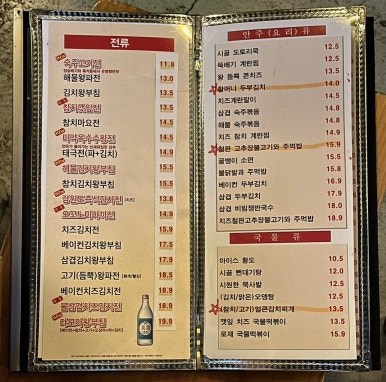 전류
숙주고기전 11.8
해물왕파전 13.0
김치왕부침 13.5
참치깻잎전 13.5
참치마요전 14.5
태극전(파+김치) 14.9
해물김치왕부침 15.5
참치김치왕부침 15.5
오꼬노미야끼전 15.5
치즈김치전 15.5
베이컨김치왕부침 17.5
삼겹김치왕부침 17.5
고기(듬뿍)왕파전 18.5
베이컨치즈김치전 18.5
18.9
19.9
안주(요리)류
시골 도토리묵 12.5
뚝배기 계란찜 12.5
왕 듬뿍 콘치즈 13.5
할머니 두부김치 13.5
치즈계란말이 14.5
삼겹 숙주볶음 14.5
해물 숙주볶음 14.5
치즈 참치 계란찜 14.9
철판 고추장불고기와 주먹밥 15.9
골뱅이 소면 15.5
불닭발과 주먹밥 15.5
베이컨 두부김치 16.9
삼겹 두부김치 17.9
삼겹 비빔쟁반국수 18.0
치즈철판고추장불고기와 주먹밥 18.9
국물류
아이스 황도 10.5
시골 뻔데기탕 12.0
시원한 북사발 12.5
(김치/맑은)오뎅탕 12.5
(참치/고기)얼큰김치찌개 13.5
깻잎 치즈 국물떡볶이 13.5
로제 국물떡볶이 15.9